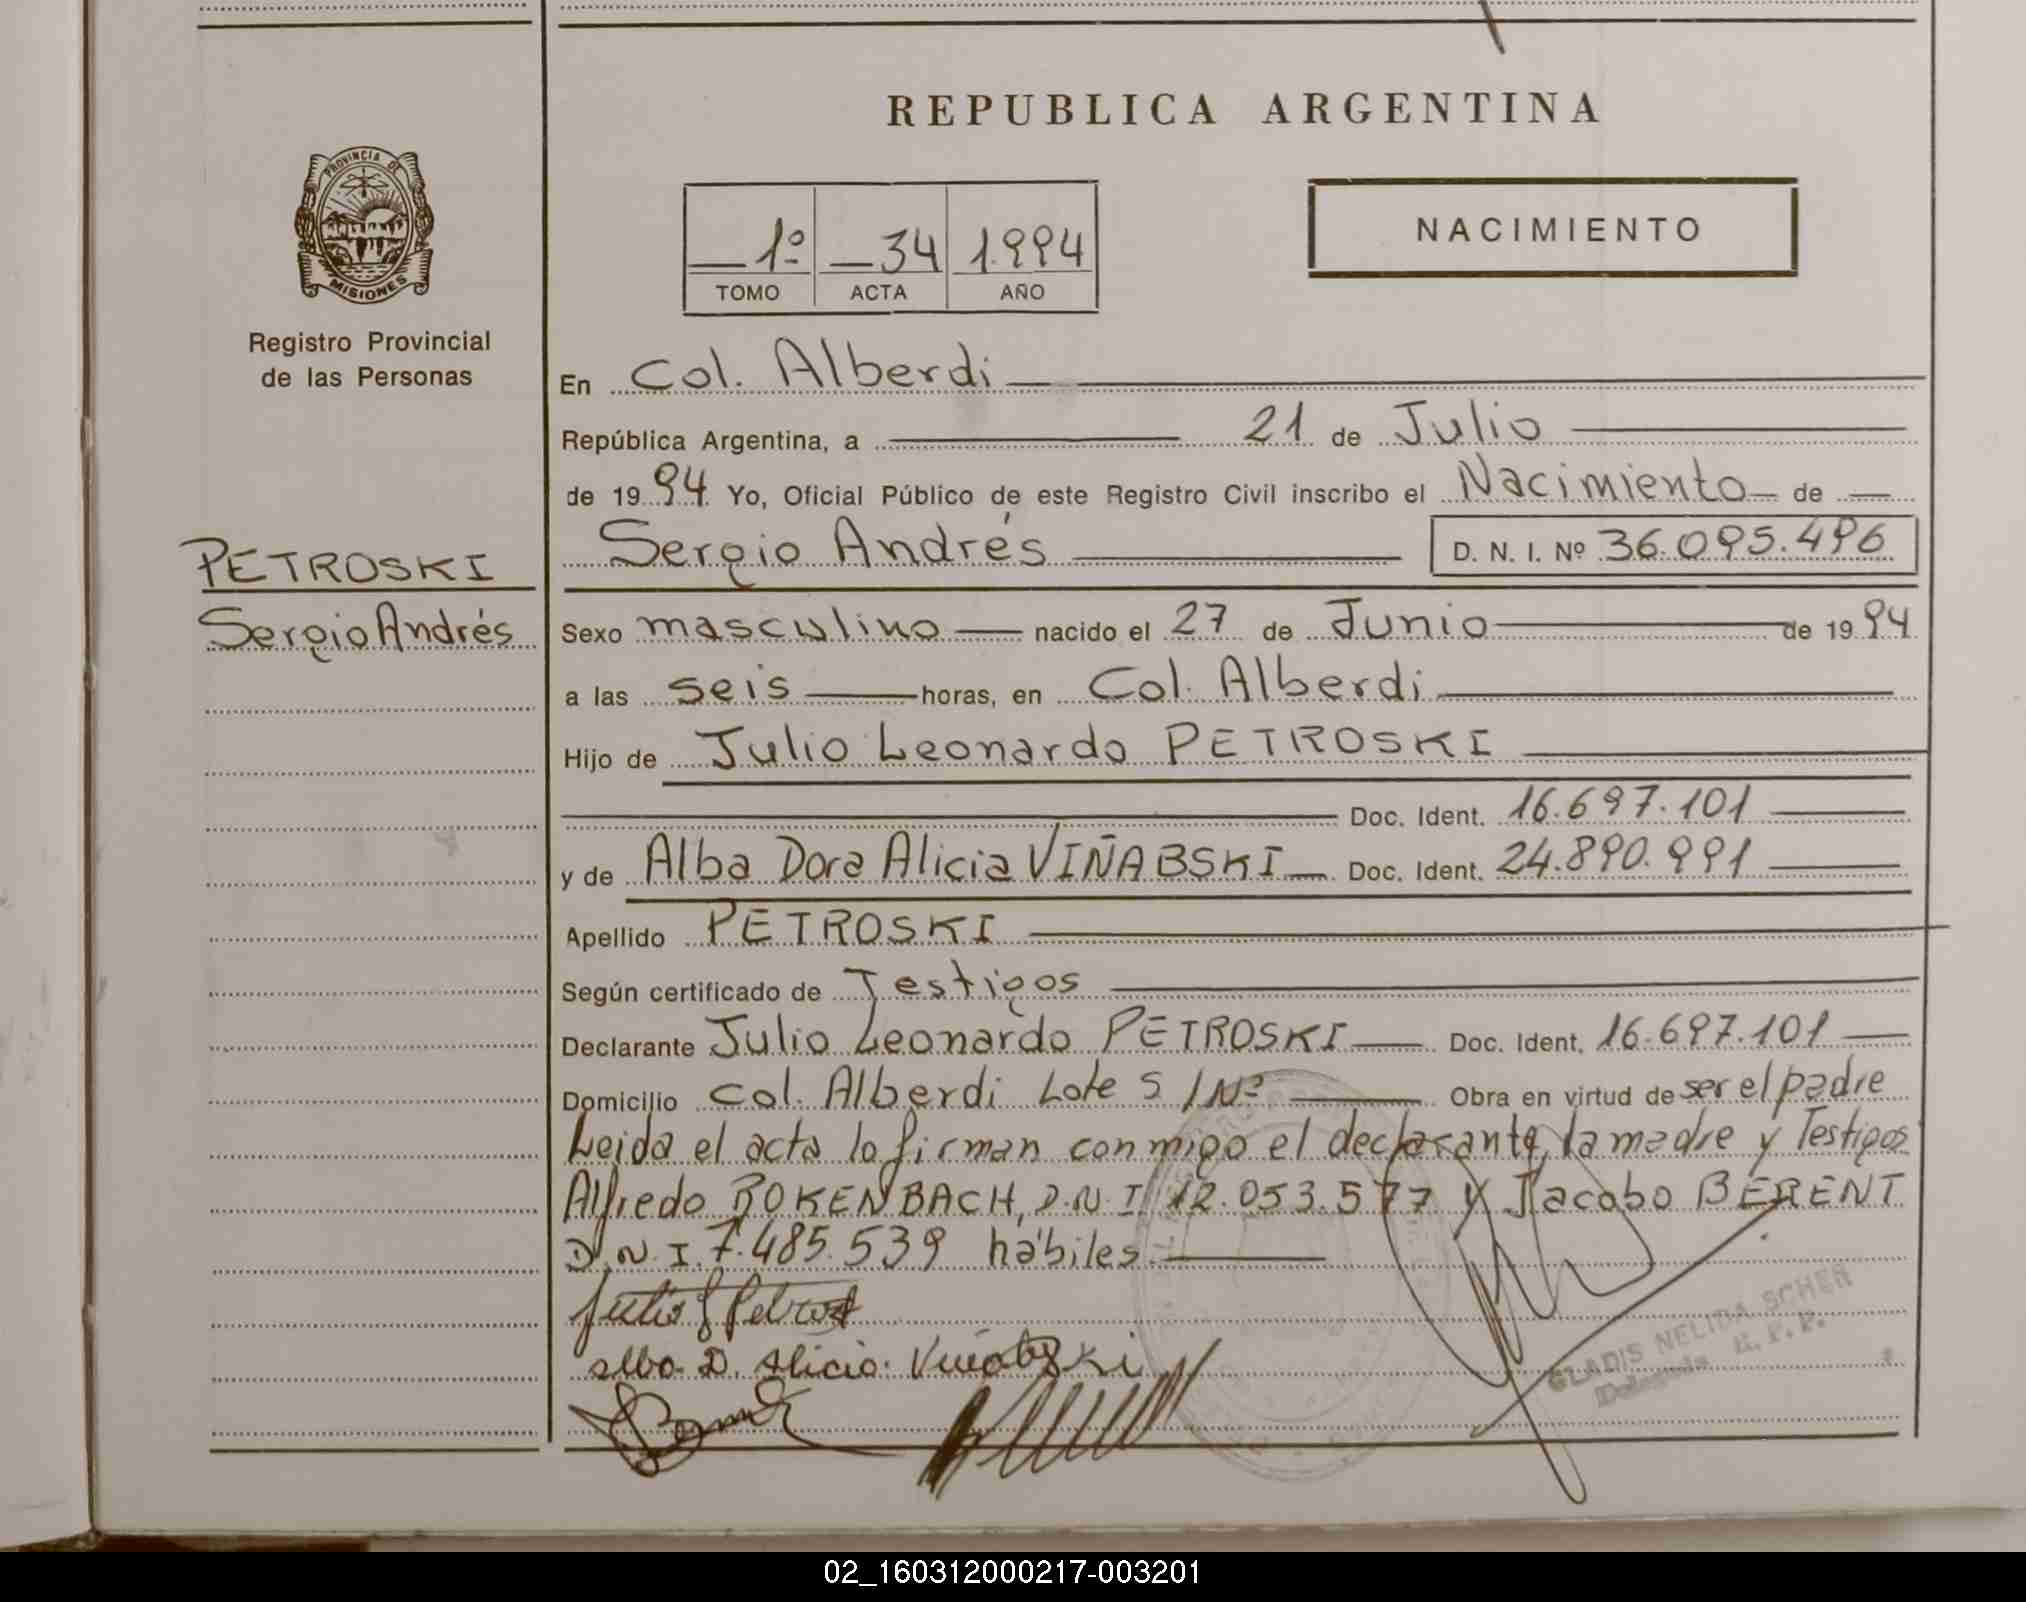 REPUBLICA ARGENTINA
PROVINCIA DE
MISIONES
Registro Provincial
de las Personas
1º 34 1.994
TOMO ACTA AÑO
NACIMIENTO
En Col. Alberdi
República Argentina, a 21 de Julio
de 1994 Yo, Oficial Público de este Registro Civil inscribo el Nacimiento de
Sergio Andrés D. N. I. Nº 36.095.496
PETROSKI
Sergio Andrés
Sexo masculino nacido el 27 de Junio de 1994
a las seis horas, en Col. Alberdi
Hijo de Julio Leonardo PETROSKI
Doc. Ident. 16.697.101
y de Alba Dora Alicia VIÑABSKI Doc. Ident. 24.890.991
Apellido PETROSKI
Según certificado de Testigos
Declarante Julio Leonardo PETROSKI Doc. Ident. 16.697.101
Domicilio Col. Alberdi Lote S/Nº Obra en virtud de ser el padre
Leida el acta la firman conmigo el declarante, la madre y Testigos
Alfredo ROKENBACH, D.N.I 12.053.577 y Jacobo BERENT
D.N.I. 7.485.539 hábiles.
Alba D. Alicia Viñabski
GLADIS NELIDA SCHER
Delegada R.P.P.
02_160312000217-003201